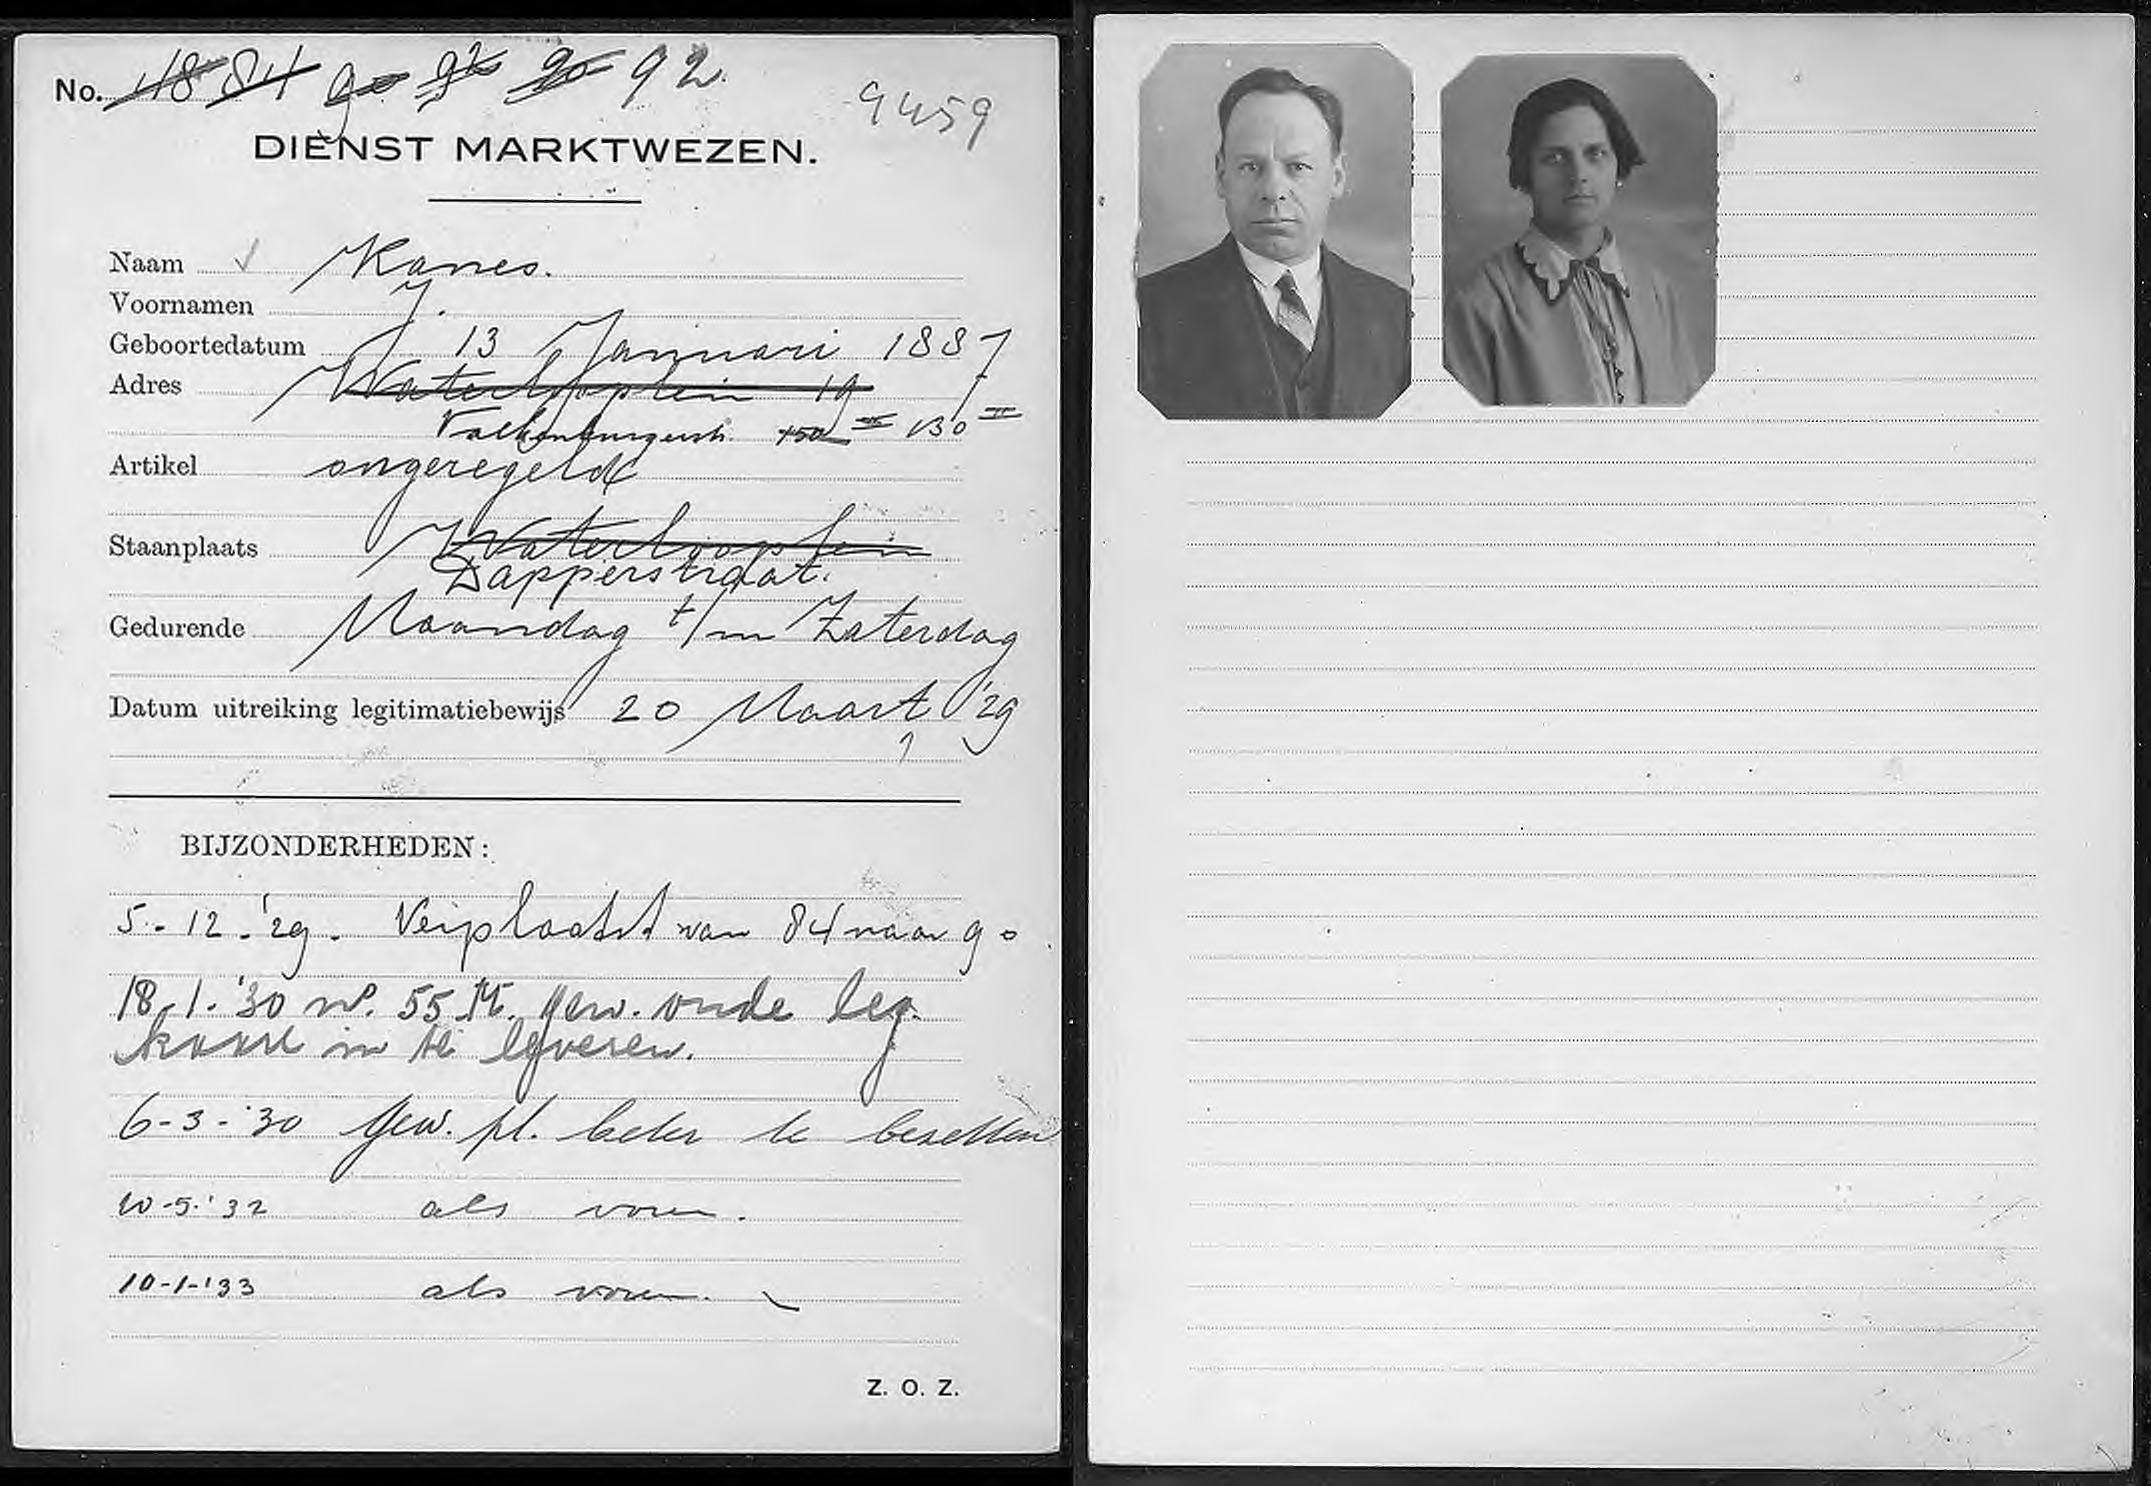 No. 18 84 90 92 90 92.
9459
DIENST MARKTWEZEN.
Naam Kanes.
Voornamen J.
Geboortedatum 13 Januari 1887
Adres Waterlooplein 19
Valkenburgerstr. 150 III 130 II
Artikel ongeregeld
Staanplaats Waterlooplein
Dapperstraat.
Gedurende Maandag t/m Zaterdag
Datum uitreiking legitimatiebewijs 20 Maart '29
BIJZONDERHEDEN:
5.-12.-'29. Verplaatst van 84 naar 90
18.1.'30 no. 55 gew. oude leg.
kaart in te leveren.
6-3-'30 gew. pl. beter te bezetten
10-5-'32 als voren.
10-1-'33 als voren.
Z. O. Z.